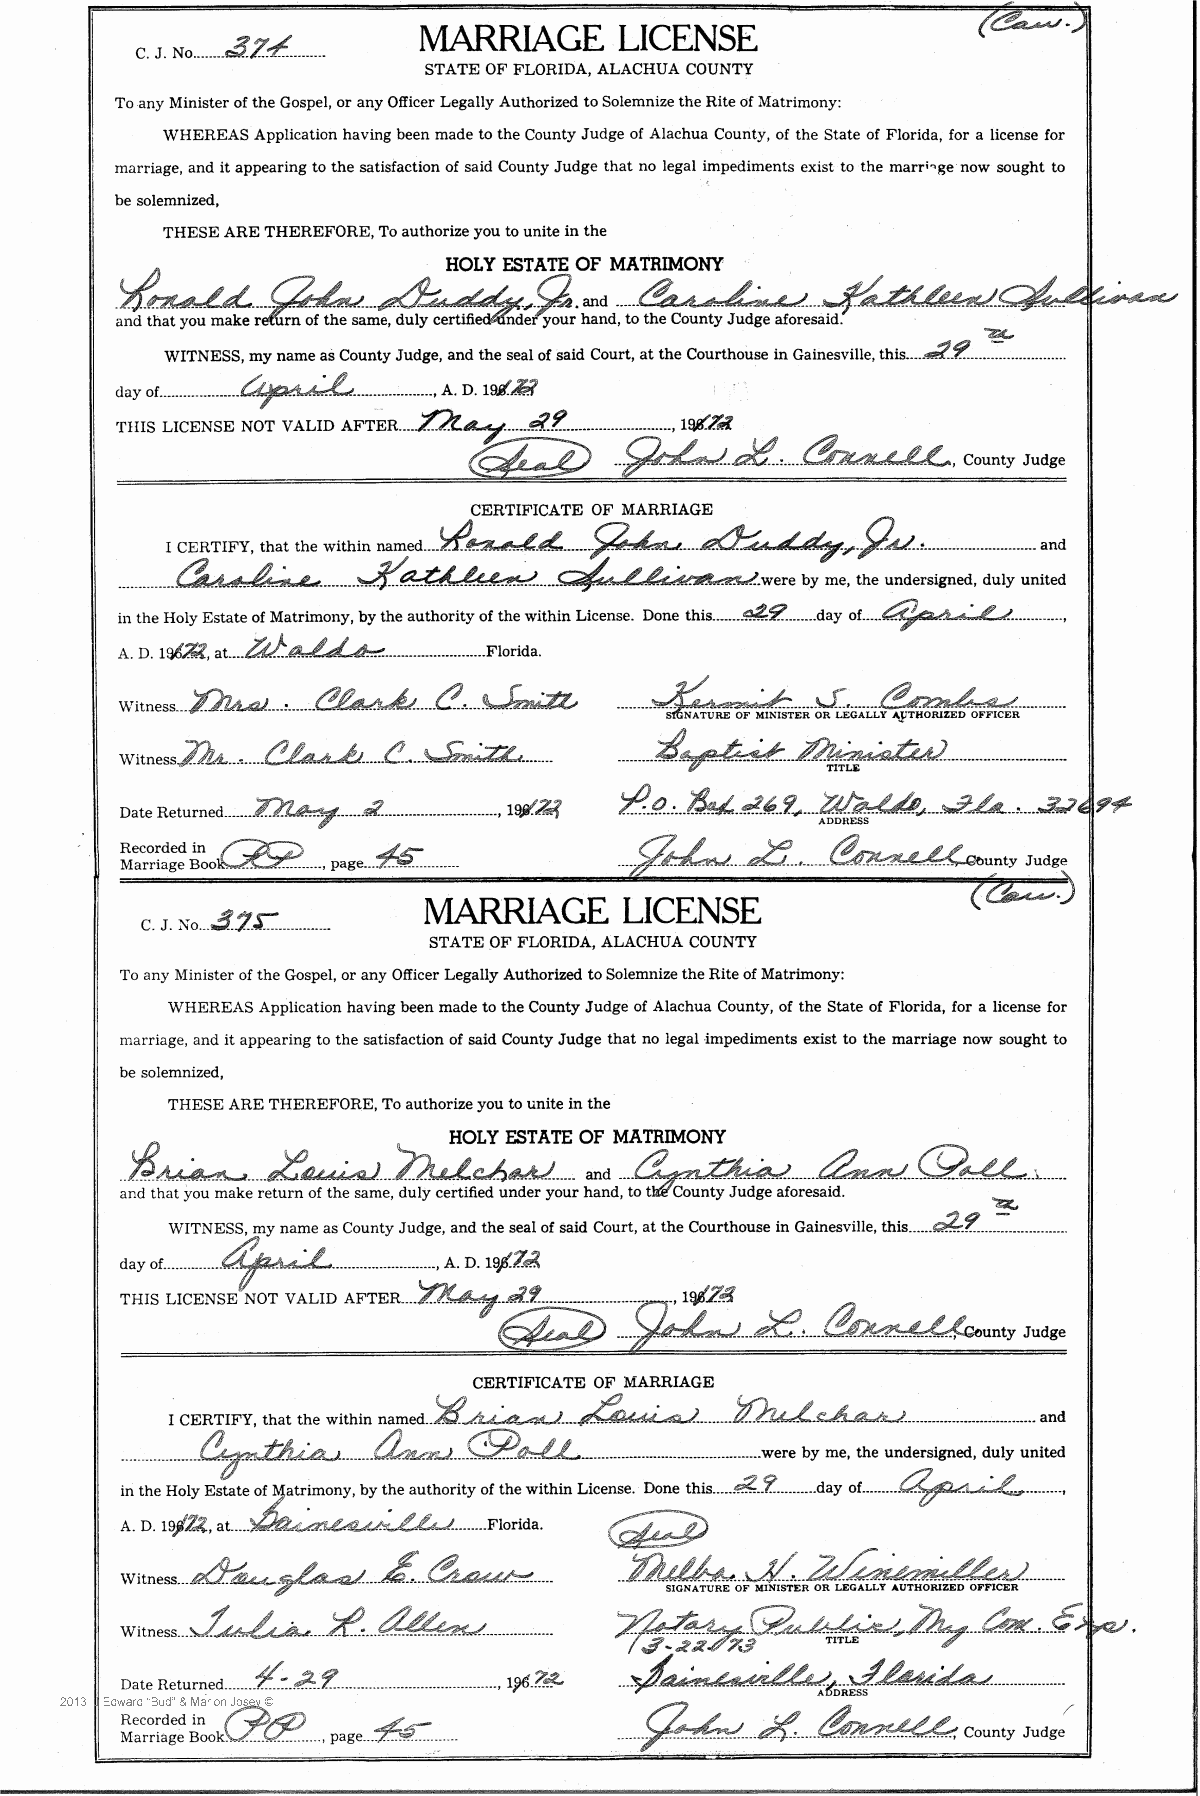 (Cau.)
C. J. No. 374 MARRIAGE LICENSE
STATE OF FLORIDA, ALACHUA COUNTY
To any Minister of the Gospel, or any Officer Legally Authorized to Solemnize the Rite of Matrimony:
WHEREAS Application having been made to the County Judge of Alachua County, of the State of Florida, for a license for
marriage, and it appearing to the satisfaction of said County Judge that no legal impediments exist to the marriage now sought to
be solemnized,
THESE ARE THEREFORE, To authorize you to unite in the
HOLY ESTATE OF MATRIMONY
Ronald John Duddy, Jr. and Caroline Kathleen Sullivan
and that you make return of the same, duly certified under your hand, to the County Judge aforesaid.
WITNESS, my name as County Judge, and the seal of said Court, at the Courthouse in Gainesville, this 29th
day of April, A. D. 1972
THIS LICENSE NOT VALID AFTER May 29, 1972
(Seal) John L. Connell, County Judge
CERTIFICATE OF MARRIAGE
I CERTIFY, that the within named Ronald John Duddy, Jr. and
Caroline Kathleen Sullivan were by me, the undersigned, duly united
in the Holy Estate of Matrimony, by the authority of the within License. Done this 29 day of April,
A. D. 1972, at Waldo Florida.
Witness Mrs. Clark C. Smith Kermit S. Combs
SIGNATURE OF MINISTER OR LEGALLY AUTHORIZED OFFICER
Witness Mr. Clark C. Smith Baptist Minister
TITLE
Date Returned May 2, 1972 P.O. Box 269, Waldo, Fla. 32694
ADDRESS
Recorded in
Marriage Book PP, page 45 John L. Connell County Judge
(Cau.)
C. J. No. 375 MARRIAGE LICENSE
STATE OF FLORIDA, ALACHUA COUNTY
To any Minister of the Gospel, or any Officer Legally Authorized to Solemnize the Rite of Matrimony:
WHEREAS Application having been made to the County Judge of Alachua County, of the State of Florida, for a license for
marriage, and it appearing to the satisfaction of said County Judge that no legal impediments exist to the marriage now sought to
be solemnized,
THESE ARE THEREFORE, To authorize you to unite in the
HOLY ESTATE OF MATRIMONY
Brian Louis Melchar and Cynthia Ann Poll
and that you make return of the same, duly certified under your hand, to the County Judge aforesaid.
WITNESS, my name as County Judge, and the seal of said Court, at the Courthouse in Gainesville, this 29th
day of April, A. D. 1972
THIS LICENSE NOT VALID AFTER May 29, 1972
(Seal) John L. Connell, County Judge
CERTIFICATE OF MARRIAGE
I CERTIFY, that the within named Brian Louis Melchar and
Cynthia Ann Poll were by me, the undersigned, duly united
in the Holy Estate of Matrimony, by the authority of the within License. Done this 29 day of April,
A. D. 1972, at Gainesville Florida.
(Seal)
Witness Douglas E. Crow Melba H. Winemiller
SIGNATURE OF MINISTER OR LEGALLY AUTHORIZED OFFICER
Witness Julia R. Allen Notary Public, My Com. Exp.
3-22-73 TITLE
Date Returned 4-29, 1972 Gainesville, Florida
ADDRESS
2013 Edward "Bud" & Marion Josey ©
Recorded in
Marriage Book PP, page 45 John L. Connell, County Judge